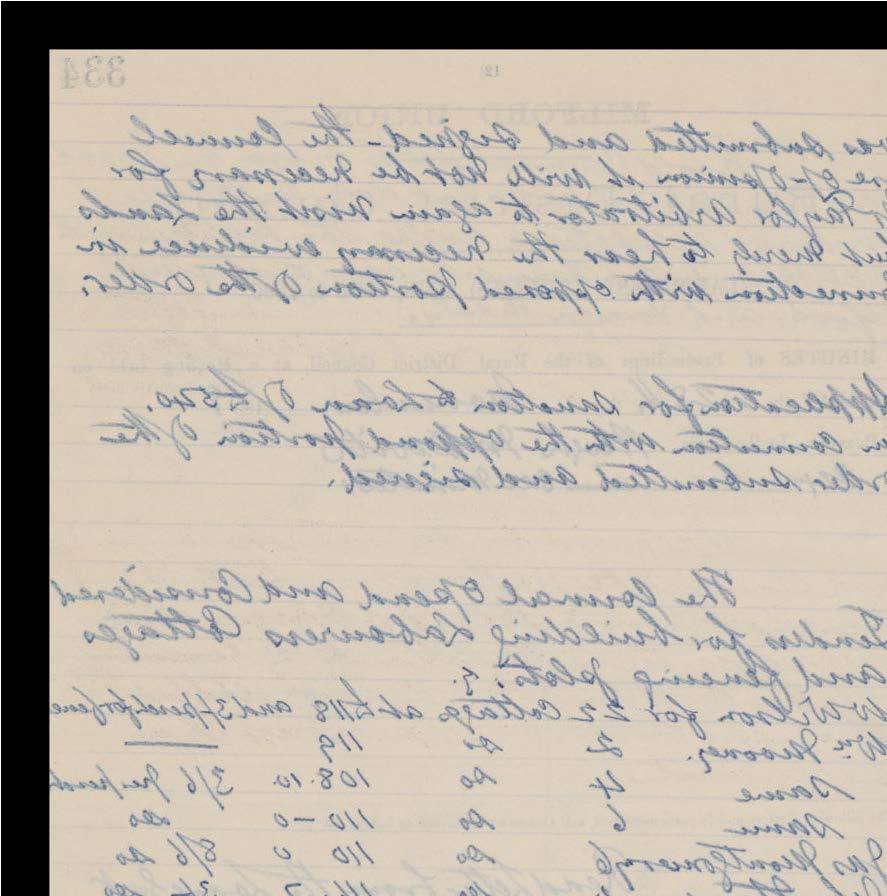 334
12
MILFORD UNION
was submitted and signed - the Council
are of opinion it will not be necessary for
Taylor Arbitrator to again visit the Lands
but merely to hear the necessary evidence in
connection with opposed portion of the order.
MINUTES of Proceedings of the Rural District Council, at a Meeting held on
Application for sanction to Loan of £540.
in connection with the opposed portion of the
order submitted and signed.
The Council opened and Considered
Tenders for building Labourers Cottages
and fencing plots:
Wilson for 22 Cottages at £118 and 3/ perch for fence
Wm Mooney. 2 do 119
Same 4 do 108.10 3/6 per perch
Same 6 do 110-0 do
Jas Montgomery 6 do 110 0 3/6 do